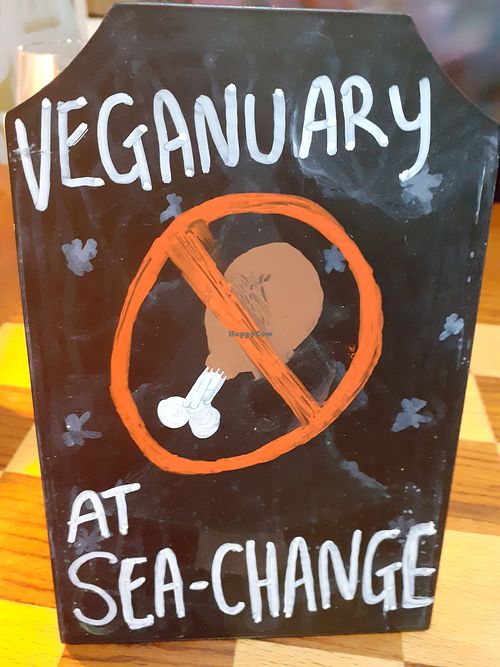 VEGANUARY
HappyCow
AT
SEA-CHANGE